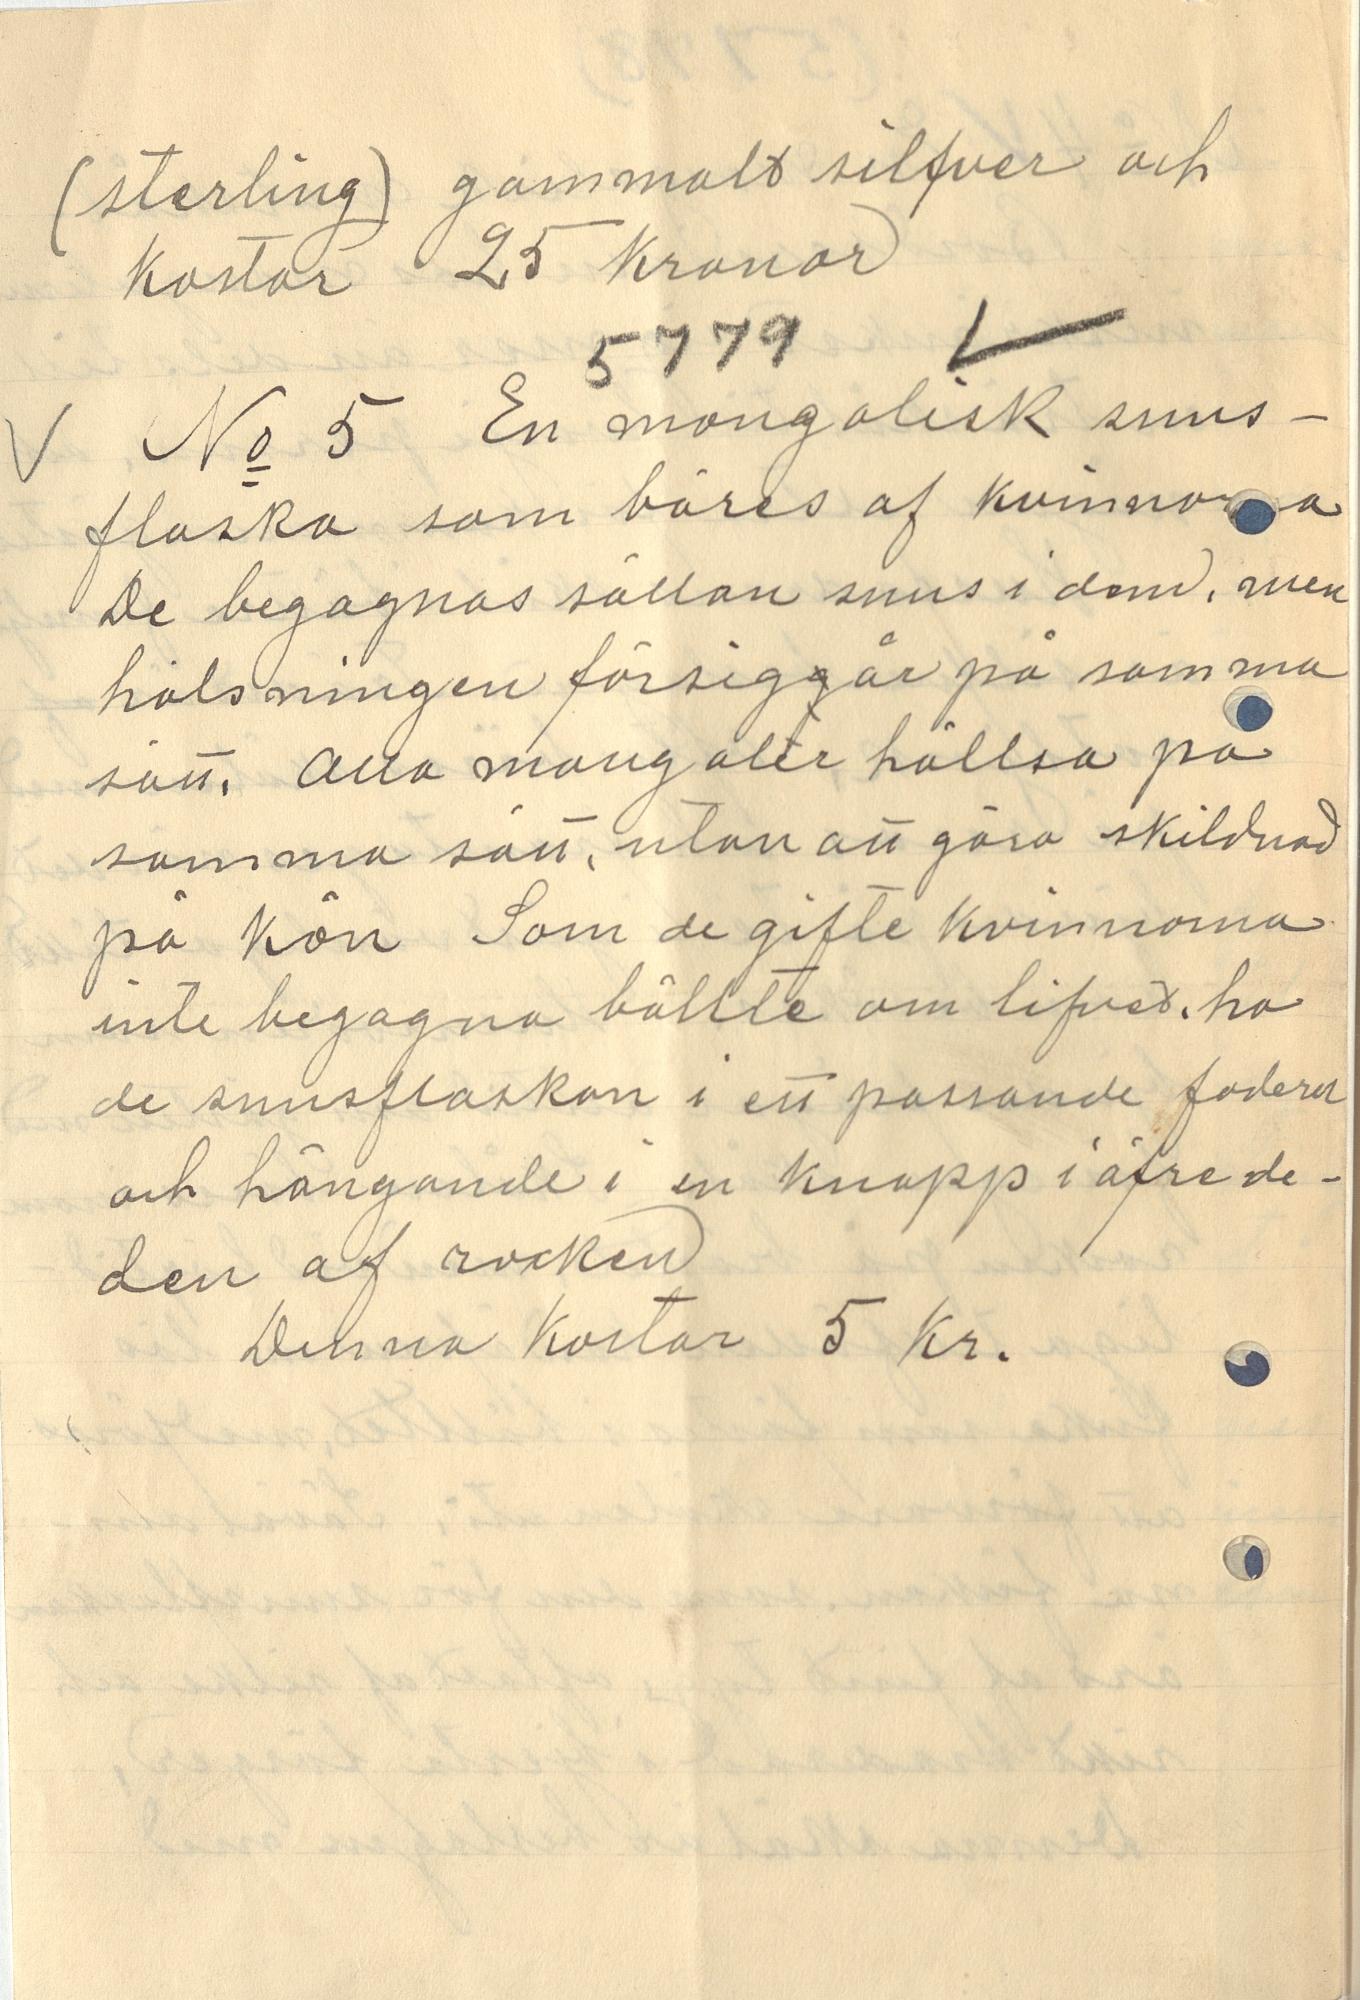 (sterling) gammalt silfver och
kostar 25 kronor
5779 ✓
V No 5 En mongolisk snus-
flaska som bäres af kvinnorna
De begagnas sällan snus i dem, men
hälsningen försiggår på samma
sätt. Alla mongoler hällsa på
samma sätt, utan att göra skildnad
på kön Som de gifte kvinnorna
inte begagna bällte om lifvet, ha
de snusflaskan i ett passande foderal
och hängande i en knapp i öfre de-
den af rocken
Denna kostar 5 kr.